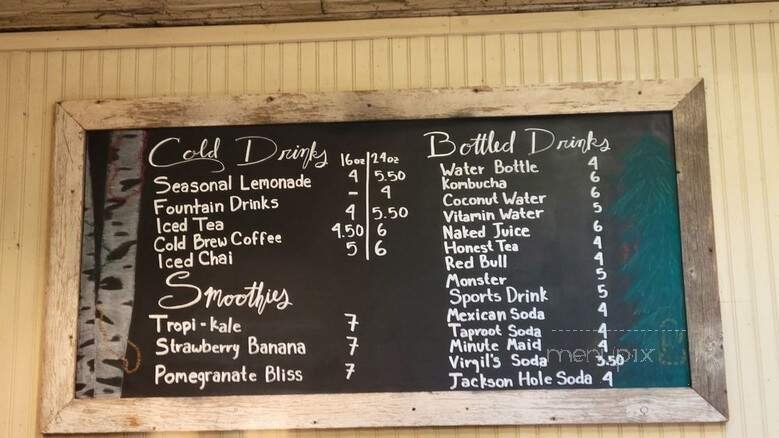 Cold Drinks 16oz 24oz
Seasonal Lemonade 4 5.50
Fountain Drinks - 4
Iced Tea 4 5.50
Cold Brew Coffee 4.50 6
Iced Chai 5 6
Smoothies
Tropi-kale 7
Strawberry Banana 7
Pomegranate Bliss 7
Bottled Drinks
Water Bottle 4
Kombucha 6
Coconut Water 6
Vitamin Water 5
Naked Juice 6
Honest Tea 4
Red Bull 4
Monster 5
Sports Drink 5
Mexican Soda 4
Taproot Soda 4
Minute Maid 4
Virgil's Soda 3.50
Jackson Hole Soda 4
menupix